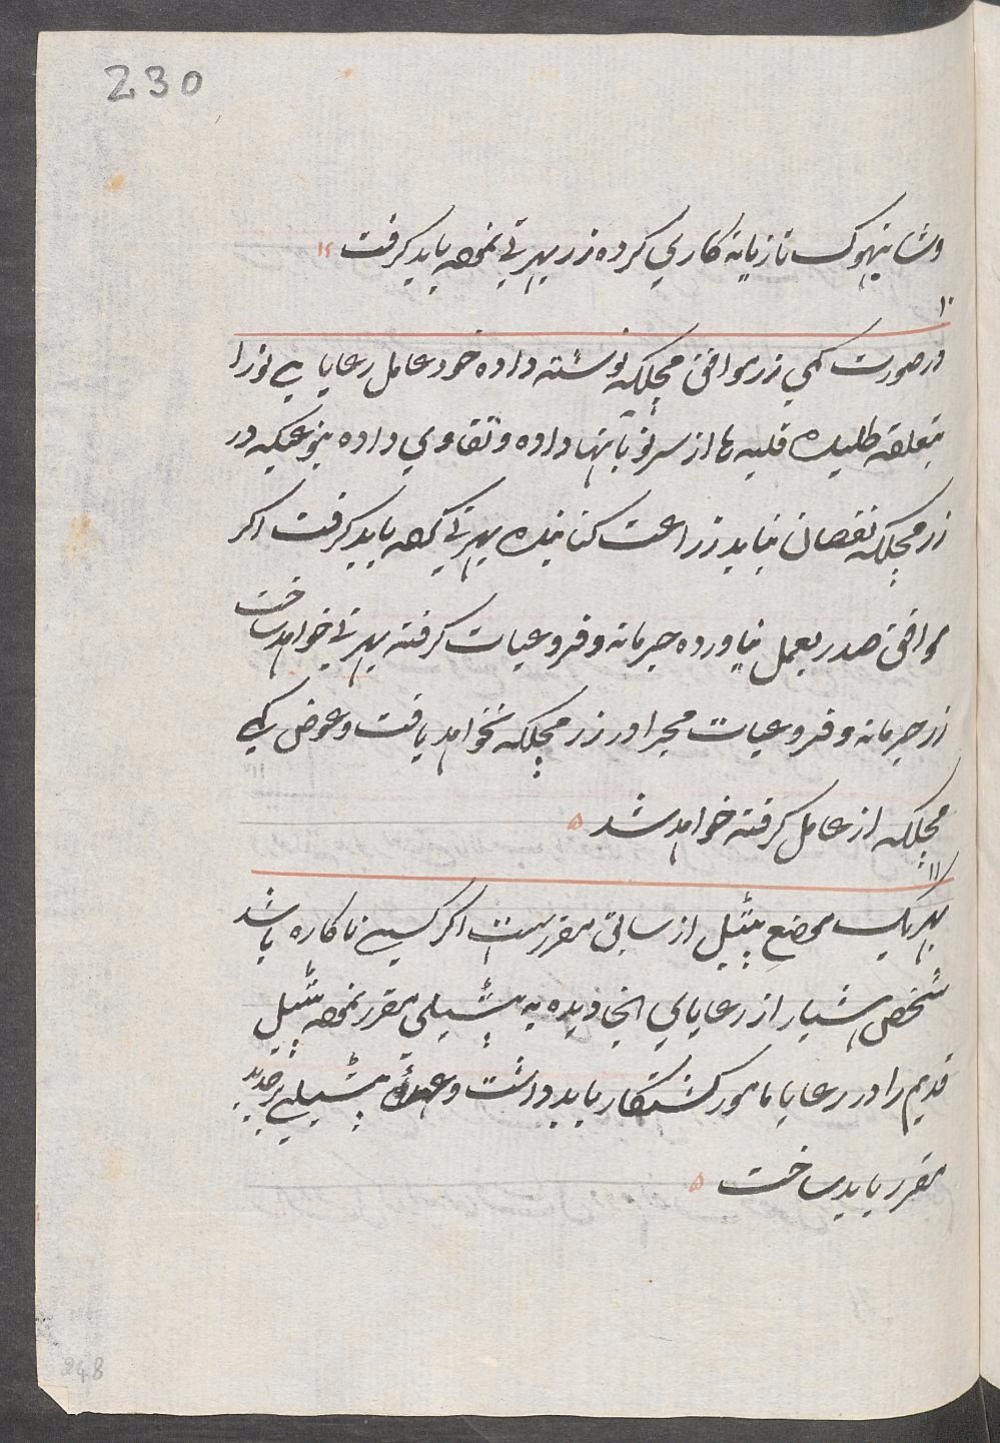 230
وشانبهوک تازیانه کاری کرده زر بهرتی نموده باید گرفت ۱۲
۱۰
در صورت کمی زر موافق مچلکه نوشته داده خود عامل رعایا بی نورا
بتعلقه طلبیده قلبه ها از سر نو بآنها داده و تقاوی داده بنوعیکه در
زر مچلکه نقصان نیاید زراعت کنانیده بهرتی کرده باید گرفت اکر
موافق صدر بعمل نیاورده جرمانه و فروعیات گرفته بهرتی خواهد ساخت
زر جرمانه و فروعیات مجرا در زر مچلکه نخواهد یافت و عوض کمی
مچلکه از عامل گرفته خواهد شد ۵
۱۱
بهریک موضع پتیل از سابق مقررست اکر کسی ناکاره باشد
شخص هشیار از رعایای انجا دیده به پتیلی مقرر نموده پتیل
قدیم را در رعایا مامور کشتکار باید داشت و عهدهٔ پتیلی بر جدید
مقرر باید ساخت ۵
248